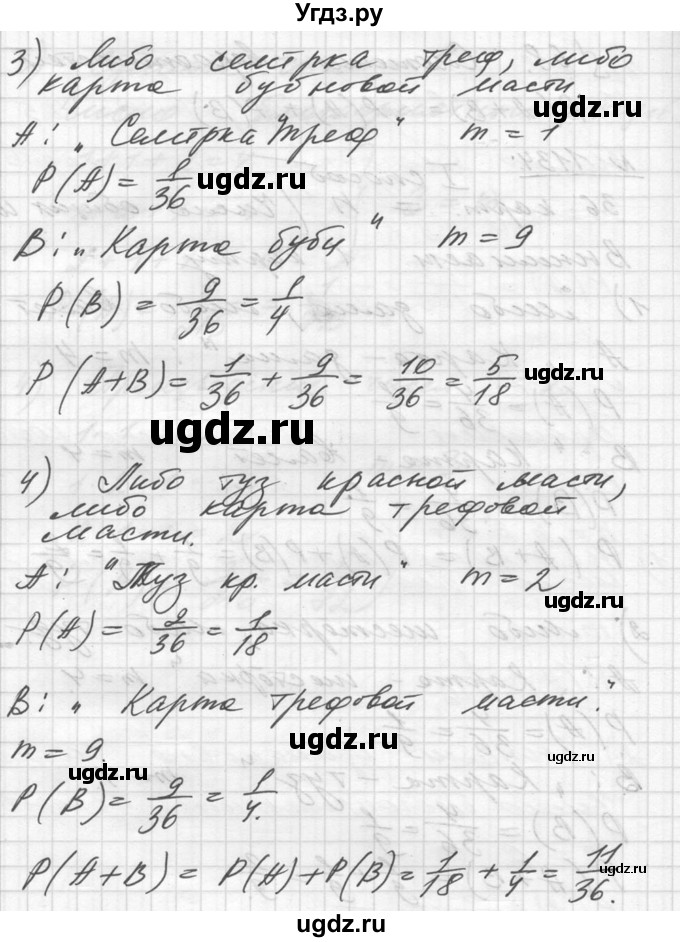 Угдз.ру
3) Либо семёрка треф, либо
карта бубновой масти.
A: „Семёрка треф" m = 1
ugdz.ru
P(A) = 1/36
ugdz.ru
B: „Карта буби" m = 9
P(B) = 9/36 = 1/4
P(A+B) = 1/36 + 9/36 = 10/36 = 5/18
ugdz.ru
ugdz.ru
4) Либо туз красной масти,
либо карта трефовой
масти.
A: "Туз кр. масти" m = 2
ugdz.ru
P(A) = 2/36 = 1/18
B: „Карта трефовой масти."
m = 9.
ugdz.ru
ugdz.ru
ugdz.ru
P(B) = 9/36 = 1/4.
P(A+B) = P(A)+P(B) = 1/18 + 1/4 = 11/36.
ugdz.ru
ugdz.ru